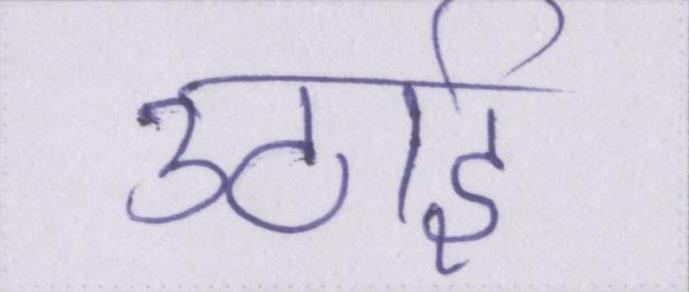 उठाई